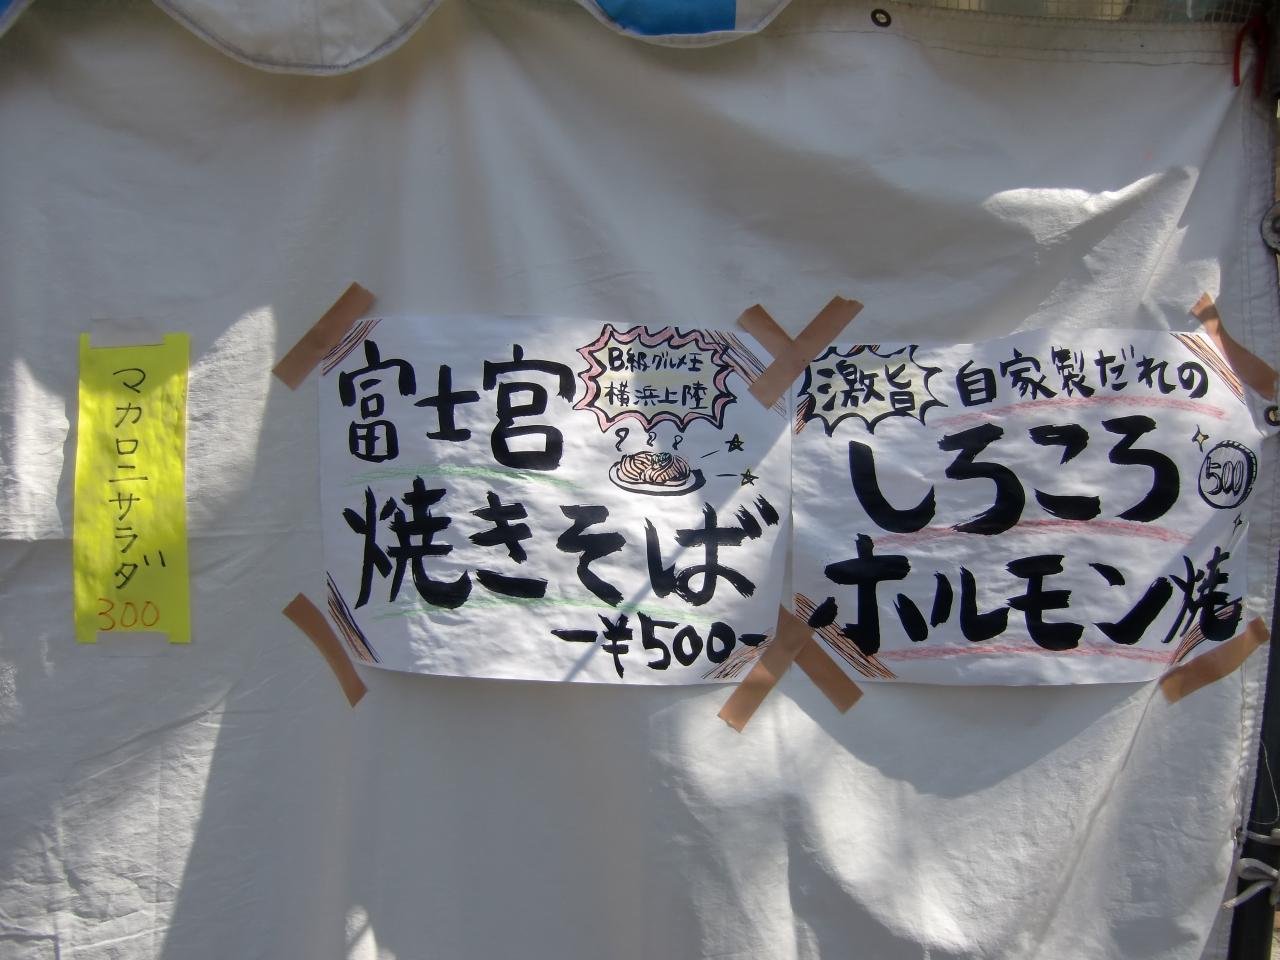 マカロニサラダ
300
富士宮
B級グルメ王
横浜上陸
焼きそば
ー¥500ー
激旨
自家製だれの
しろころ
500
ホルモン焼